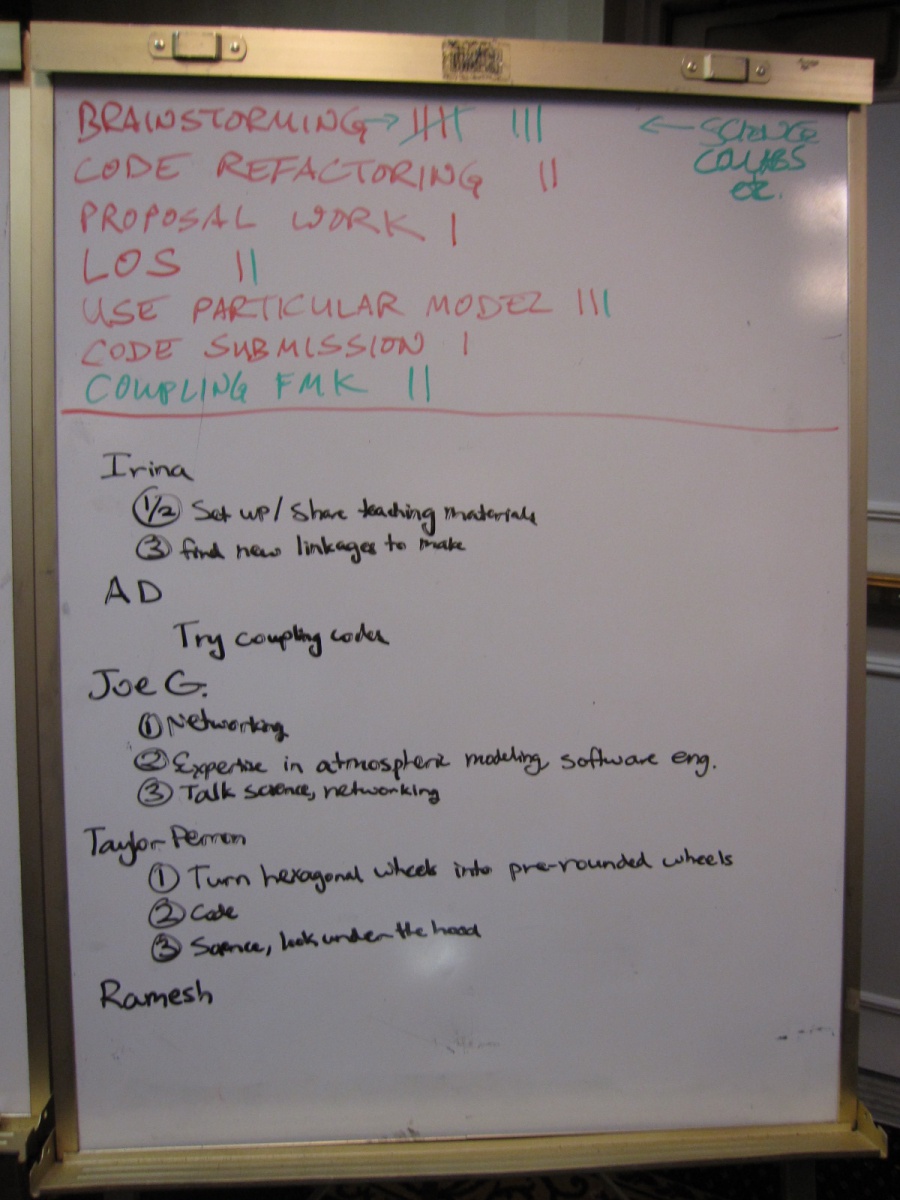 BRAINSTORMING → |||| |||  ← SCIENCE
COLLABS
etc.
CODE REFACTORING ||
PROPOSAL WORK |
LOS ||
USE PARTICULAR MODEL |||
CODE SUBMISSION |
COUPLING FMK ||
Irina
1/2 Set up / Share teaching materials
3 find new linkages to make
AD
Try coupling codes
Joe G.
1 Networking
2 Expertise in atmospheric modeling, software eng.
3 Talk science, networking
Taylor Perron
1 Turn hexagonal wheels into pre-rounded wheels
2 Code
3 Science, look under the hood
Ramesh